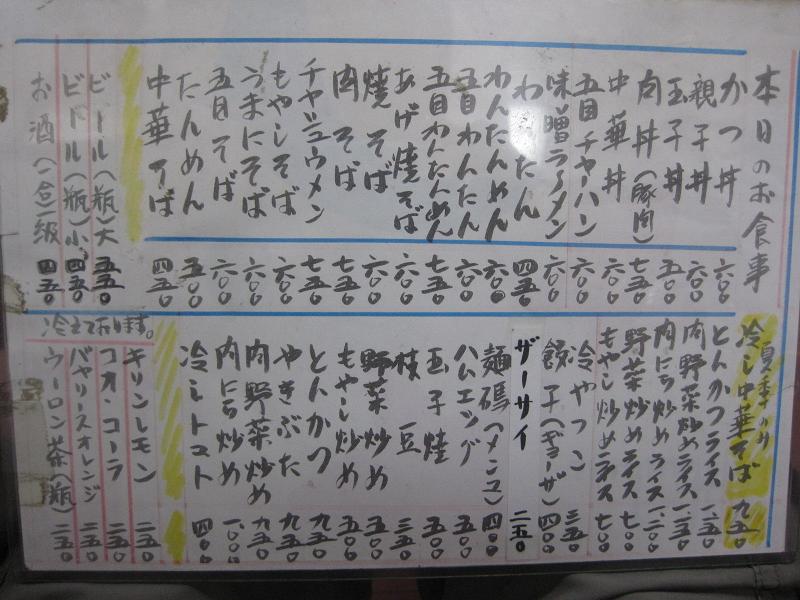 本日のお食事
かつ丼 六〇〇
親子丼 六〇〇
玉子丼 五〇〇
肉丼(豚肉) 七五〇
中華丼 六〇〇
五目チャーハン 六〇〇
味噌ラーメン 六〇〇
わんたん 四五〇
わんたんめん 六〇〇
五目わんたん 六〇〇
五目わんたんめん 七五〇
あげ焼そば 六〇〇
焼そば 六〇〇
肉そば 七五〇
チャシュウメン 七五〇
もやしそば 六〇〇
うまにそば 六〇〇
五目そば 六〇〇
たんめん 五〇〇
中華そば 四五〇
ビール(瓶)大 五五〇
ビール(瓶)小 四五〇
お酒(一合一級 四五〇
夏季のみ
冷し中華そば 九五〇
とんかつライス 一、二五〇
肉野菜炒めライス 一、二五〇
肉にら炒めライス 一、二〇〇
野菜炒めライス 七〇〇
もやし炒めライス 七〇〇
冷やっこ 三五〇
餃子(ギョーザ) 四〇〇
ザーサイ 二五〇
麺碼(メンマ) 四〇〇
ハムエッグ 五〇〇
玉子焼 五〇〇
枝豆 三五〇
野菜炒め 五〇〇
もやし炒め 五〇〇
とんかつ 九五〇
やきぶた 九五〇
肉野菜炒め 九五〇
肉にら炒め 一、〇〇〇
冷しトマト 四〇〇
冷えております。
キリンレモン 二五〇
コオンコーラ 二五〇
バヤリースオレンジ 二五〇
ウーロン茶(瓶) 二五〇